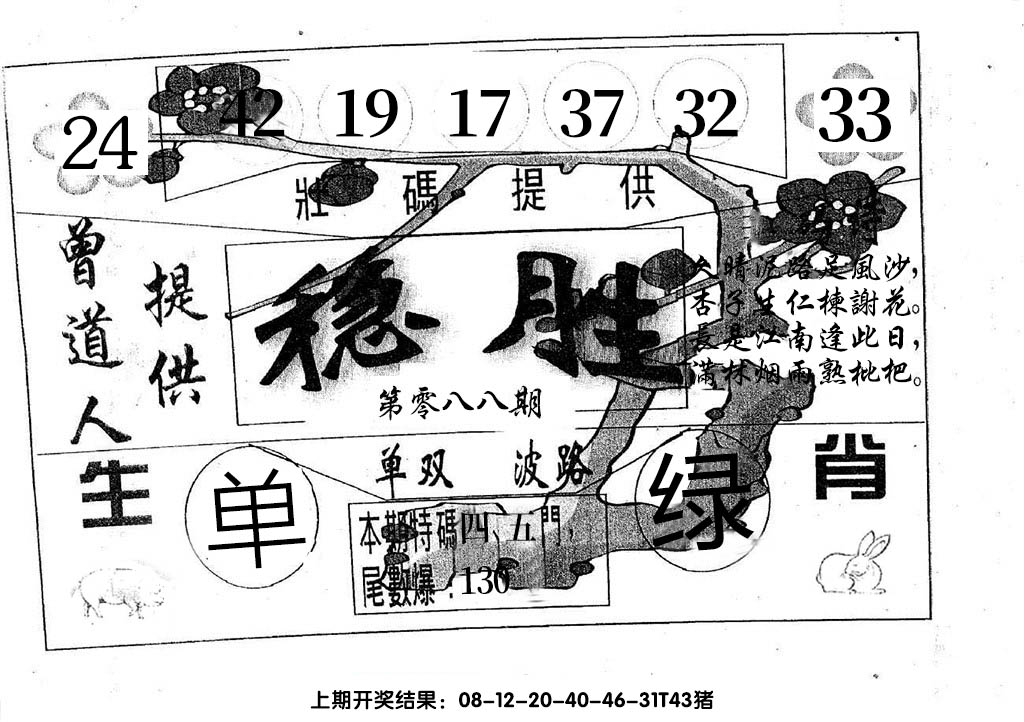 24 42 19 17 37 32 33
壯碼提供
曾道人
提供
稳胜
特
久晴泥路足風沙，
杏子生仁楝謝花。
長是江南逢此日，
滿林烟雨熟枇杷。
第零八八期
单双 波路
生
单
绿
肖
本期特碼四、五門，
尾數爆：130
上期开奖结果：08-12-20-40-46-31T43猪